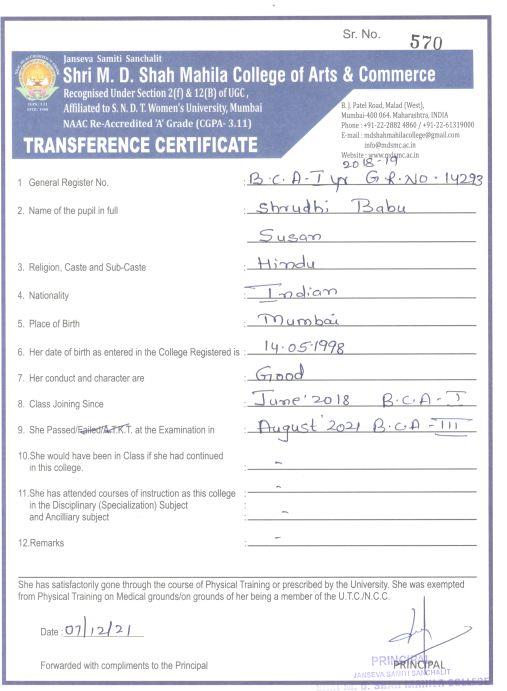 Sr. No. 570
Janseva Samiti Sanchalit
Shri M. D. Shah Mahila College of Arts & Commerce
Recognised Under Section 2(f) & 12(B) of UGC,
Affiliated to S. N. D. T. Women's University, Mumbai
NAAC Re-Accredited 'A' Grade (CGPA- 3.11)
TRANSFERENCE CERTIFICATE
B. J. Patel Road, Malad (West),
Mumbai-400 064. Maharashtra, INDIA
Phone : +91-22-2882 4860 / +91-22-61319000
E-mail : mdshahmahilacollege@gmail.com
info@mdsmc.ac.in
Website : www.mdsmc.ac.in
2018-19
1 General Register No. : B.C.A-I yr G.R.No.14293
2. Name of the pupil in full : Shrudhi Babu
Susan
3. Religion, Caste and Sub-Caste : Hindu
4. Nationality : Indian
5. Place of Birth : Mumbai
6. Her date of birth as entered in the College Registered is : 14.05.1998
7. Her conduct and character are : Good
8. Class Joining Since : June'2018 B.C.A-I
9. She Passed/Failed/A.T.K.T. at the Examination in : August'2021 B.C.A-III
10.She would have been in Class if she had continued : -
in this college.
11.She has attended courses of instruction as this college : -
in the Disciplinary (Specialization) Subject
and Ancilliary subject -
12.Remarks : -
She has satisfactorily gone through the course of Physical Training or prescribed by the University. She was exempted
from Physical Training on Medical grounds/on grounds of her being a member of the U.T.C./N.C.C.
Date : 07/12/21
PRINCIPAL
Forwarded with compliments to the Principal
PRINCIPAL
JANSEVA SAMITI SANCHALIT
M. D. SHAH MAHILA COLLEGE